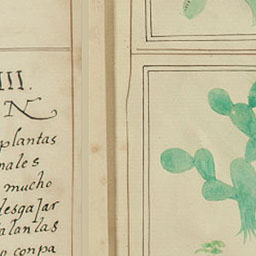 III.
N
plantas
nales
mucho
desgajar
alanlas
o conpa